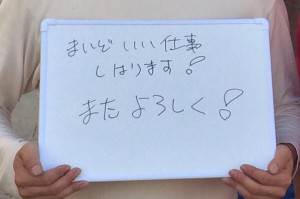 まいど いい 仕事
しはります!
また よろしく!